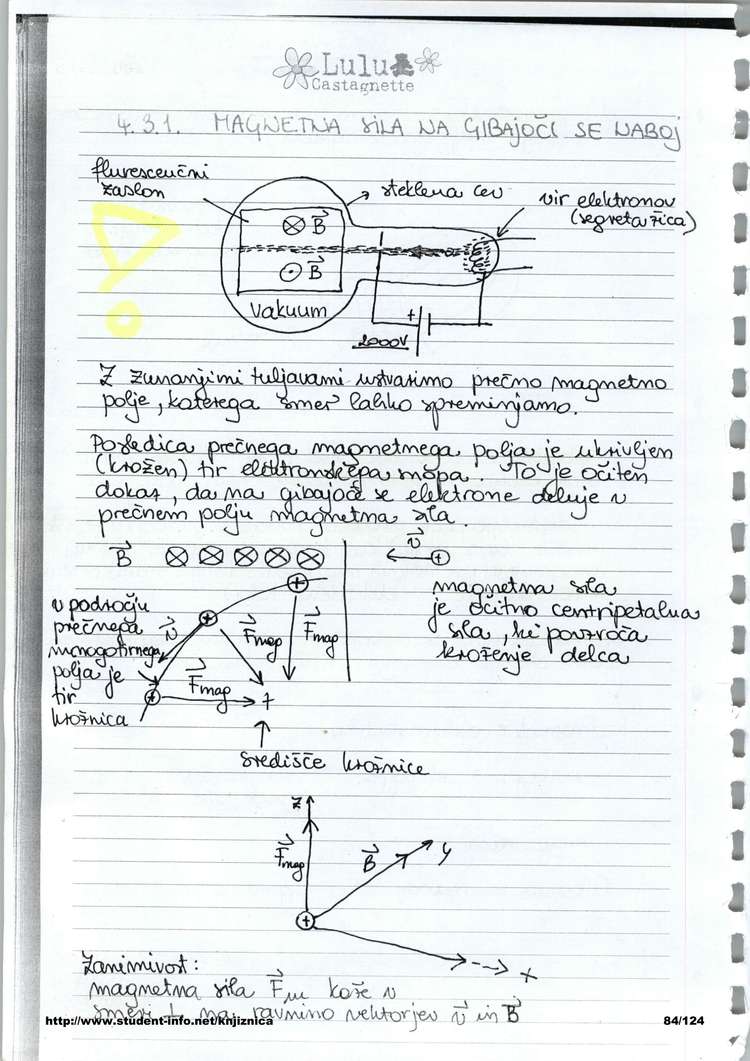 Lulu
Castagnette
4.3.1. MAGNETNA SILA NA GIBAJOČ SE NABOJ
fluresceučni
zaslon
steklena cev
vir elektronov
(segreta žica)
B
B
Vakuum
+
2000V
Z zunanjimi tuljavami ustvarimo prečno magnetno
polje, katerega smer lahko spreminjamo.
Posledica prečnega magnetnega polja je ukrivljen
(krožen) tir elektronskega snopa. To je očiten
dokaz, da na gibajoče se elektrone deluje v
prečnem polju magnetna sila.
B
v
v področju
prečnega
polja je
tir
krožnica
v
Fmag
Fmag
Fmag
magnetna sila
je očitno centripetalna
sila, ki povzroča
kroženje delca
središče krožnice
z
Fmag
B
y
x
Zanimivost:
magnetna sila Fm kaže v
smeri ⊥ na ravnino vektorjev v in B
http://www.student-info.net/knjiznica
84/124